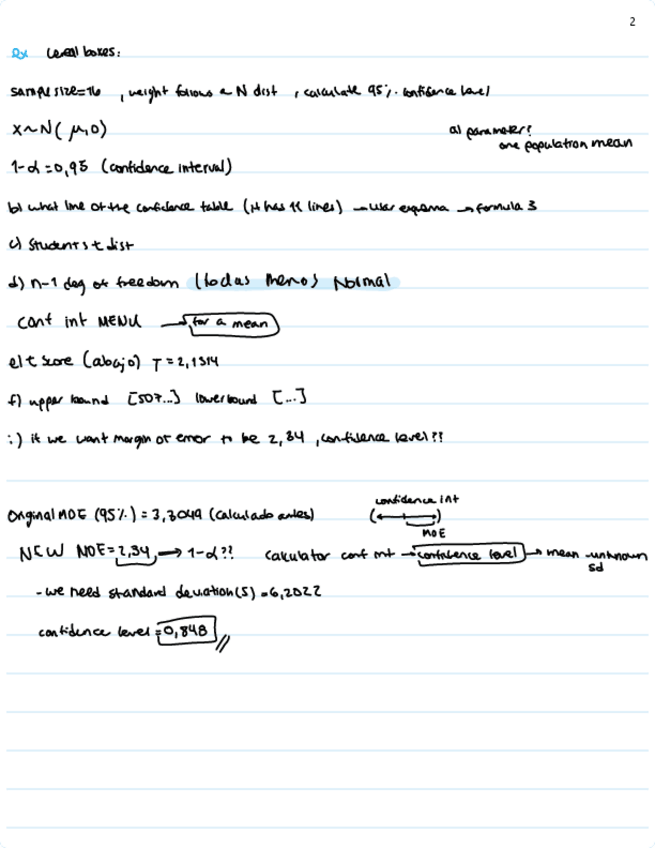 2
Ex cereal boxes:
sample size=16 , weight follows a N dist , calculate 95%. confidence level
X~N( μ,σ)
a) parameter?
one population mean
1-α=0,95 (confidence interval)
b) what line of the confidence table (it has 11 lines) → usar esquema → formula 3
c) student s t dist
d) n-1 deg of freedom (todas menos Normal
conf int MENU → for a mean
e) t score (abajo) T=2,1314
f) upper bound [507...] lower bound [...]
:) if we want margin of error to be 2,34 , confidence level??
confidence int
Original MOE (95%.) = 3,3049 (calculado antes)
MOE
NEW MOE=2,34, → 1-α?? calculator conf int → confidence level → mean -unknown
sd
- we need standard deviation(s) = 6,2022
confidence level = 0,848